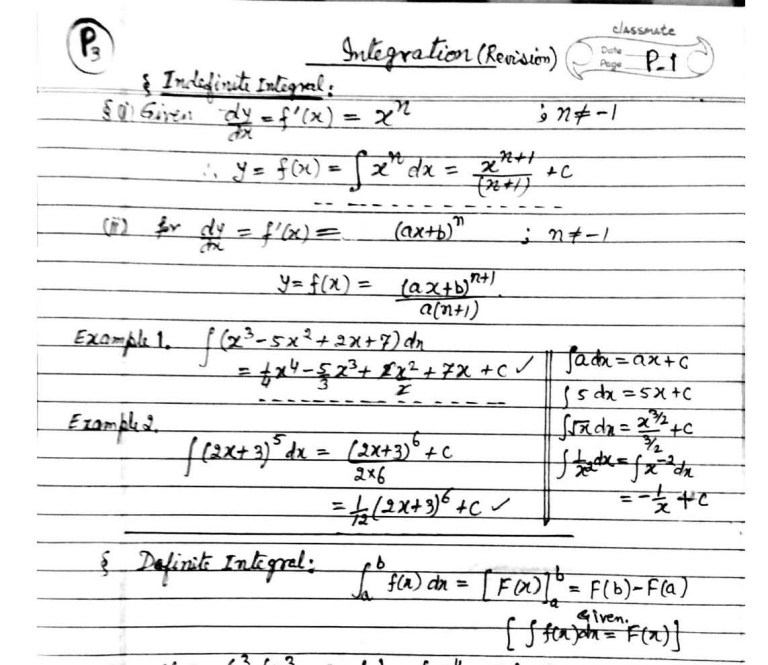 P3
classmate
Date
Page P-1
Integration (Revision)
§ Indefinite Integral:
§ (i) Given dy/dx = f'(x) = x^n ; n ≠ -1
∴ y = f(x) = ∫ x^n dx = x^(n+1)/(n+1) + c
(ii) for dy/dx = f'(x) = (ax+b)^n ; n ≠ -1
y = f(x) = (ax+b)^(n+1)/a(n+1)
Example 1. ∫ (x³ - 5x² + 2x + 7) dx
= 1/4 x⁴ - 5/3 x³ + 2x²/2 + 7x + c ✓
∫ a dx = ax + c
∫ 5 dx = 5x + c
∫ √x dx = x^(3/2)/(3/2) + c
∫ 1/x² dx = ∫ x^-2 dx
= -1/x + c
Example 2.
∫ (2x+3)⁵ dx = (2x+3)⁶/2×6 + c
= 1/12 (2x+3)⁶ + c ✓
§ Definite Integral: ∫_a^b f(x) dx = [F(x)]_a^b = F(b) - F(a)
Given.
[∫ f(x) dx = F(x)]